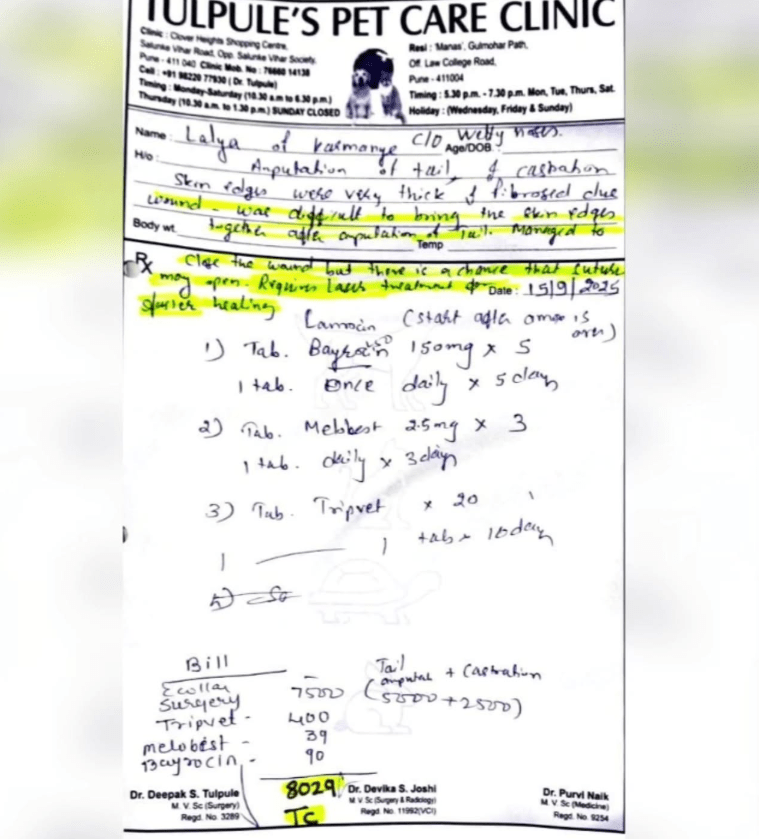 TULPULE'S PET CARE CLINIC
Clinic : Clover Heights Shopping Centre,
Salunke Vihar Road, Opp. Salunke Vihar Society,
Pune - 411 040 Clinic Mob. No : 76660 14138
Cell : +91 98220 77930 ( Dr. Tulpule)
Timing : Monday-Saturday (10.30 a.m to 6.30 p.m.)
Thursday (10.30 a.m. to 1.30 p.m.) SUNDAY CLOSED
Resi : 'Manas', Gulmohar Path,
Off. Law College Road,
Pune - 411004
Timing : 5.30 p.m. - 7.30 p.m. Mon, Tue, Thurs, Sat.
Holiday : (Wednesday, Friday & Sunday)
Name : Lalya of c/o
Age/DOB :
H/o : Amputation of tail & castration
Skin edges were very thick & fibrosed due
wound - was difficult to bring the skin edges
Body wt. together after amputation of Tail. Managed to
Temp
Rx Close the wound but there is a chance that
may open. Requires Laser treatment for Date : 15/9/2025
healing
(start after is over)
1) Tab. Bayrocin 150mg x 5
1 tab. Once daily x 5 days
2) Tab. Melobest 2.5mg x 3
1 tab. daily x 3 days
3) Tab. Tripvet x 20
1 — 1 tab x 10 days
Bill
Ecollar -
Surgery 7500 (Tail + Castration
(5000 + 2500)
Tripvet - 400
melobest - 39
Bayrocin - 90
8029
TC
Dr. Deepak S. Tulpule
M. V. Sc (Surgery)
Regd. No. 3289
Dr. Devika S. Joshi
M. V. Sc (Surgery & Radiology)
Regd. No. 11992(VCI)
Dr. Purvi Naik
M. V. Sc (Medicine)
Regd. No. 9254